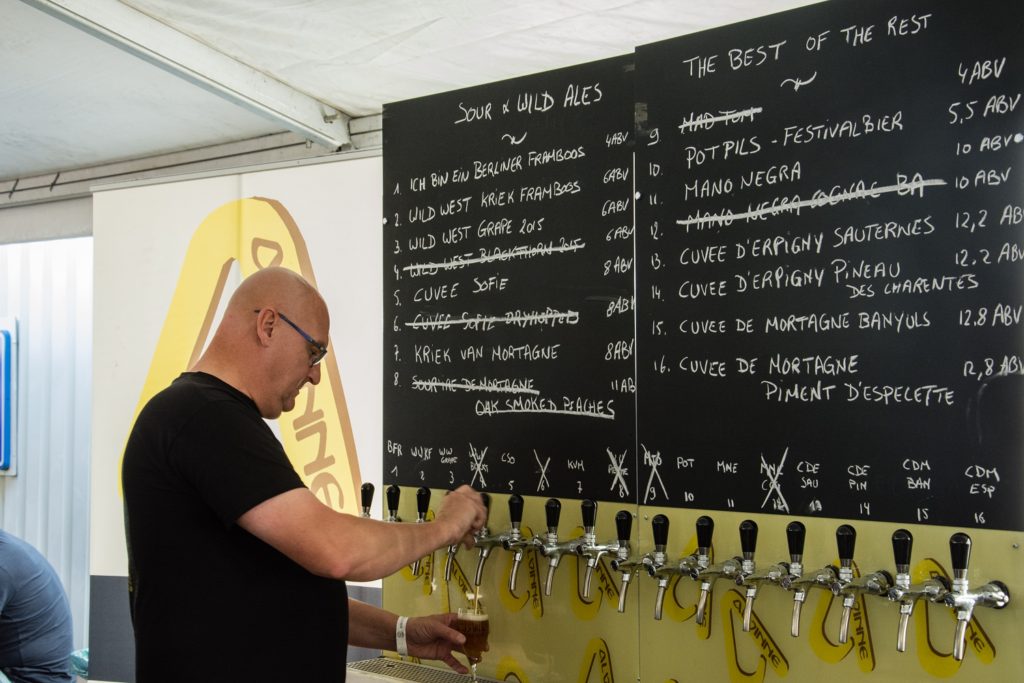 SOUR & WILD ALES
1. ICH BIN EIN BERLINER FRAMBOOS 4ABV
2. WILD WEST KRIEK FRAMBOOS 6ABV
3. WILD WEST GRAPE 2015 6ABV
4. WILD WEST BLACKTHORN 2015 6ABV
5. CUVEE SOFIE 8ABV
6. CUVEE SOFIE DRYHOPPED 8ABV
7. KRIEK VAN MORTAGNE 8ABV
8. SOUR'NE DE MORTAGNE 11AB
OAK SMOKED PEACHES
BFR WWKF WW GRAPE CSO KVM
1 2 3 5 7 8
THE BEST OF THE REST
9. MAD TOM 4ABV
10. POTPILS - FESTIVALBIER 5,5 ABV
11. MANO NEGRA 10 ABV
12. MANO NEGRA COGNAC BA 10 ABV
13. CUVEE D'ERPIGNY SAUTERNES 12,2 ABV
14. CUVEE D'ERPIGNY PINEAU 12,2 ABV
DES CHARENTES
15. CUVEE DE MORTAGNE BANYULS 12,8 ABV
16. CUVEE DE MORTAGNE 12,8 ABV
PIMENT D'ESPELETTE
MTB POT MNE CDE SAU CDE PIN CDM BAN CDM ESP
9 10 11 12 13 14 15 16
ALVINNE